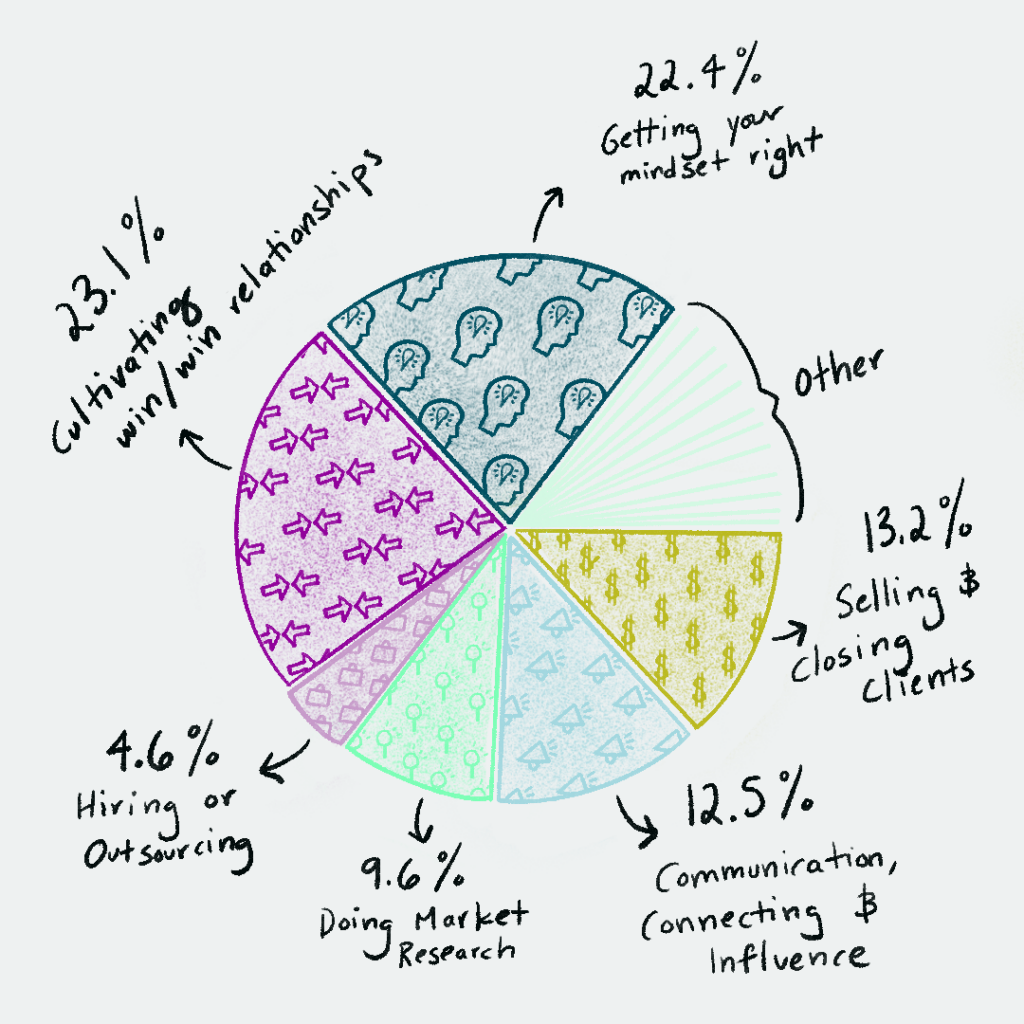 22.4%
Getting your
mindset right
23.1%
Cultivating
win/win relationships
Other
13.2%
Selling &
Closing
Clients
4.6%
Hiring or
Outsourcing
9.6%
Doing Market
Research
12.5%
Communication,
Connecting &
Influence